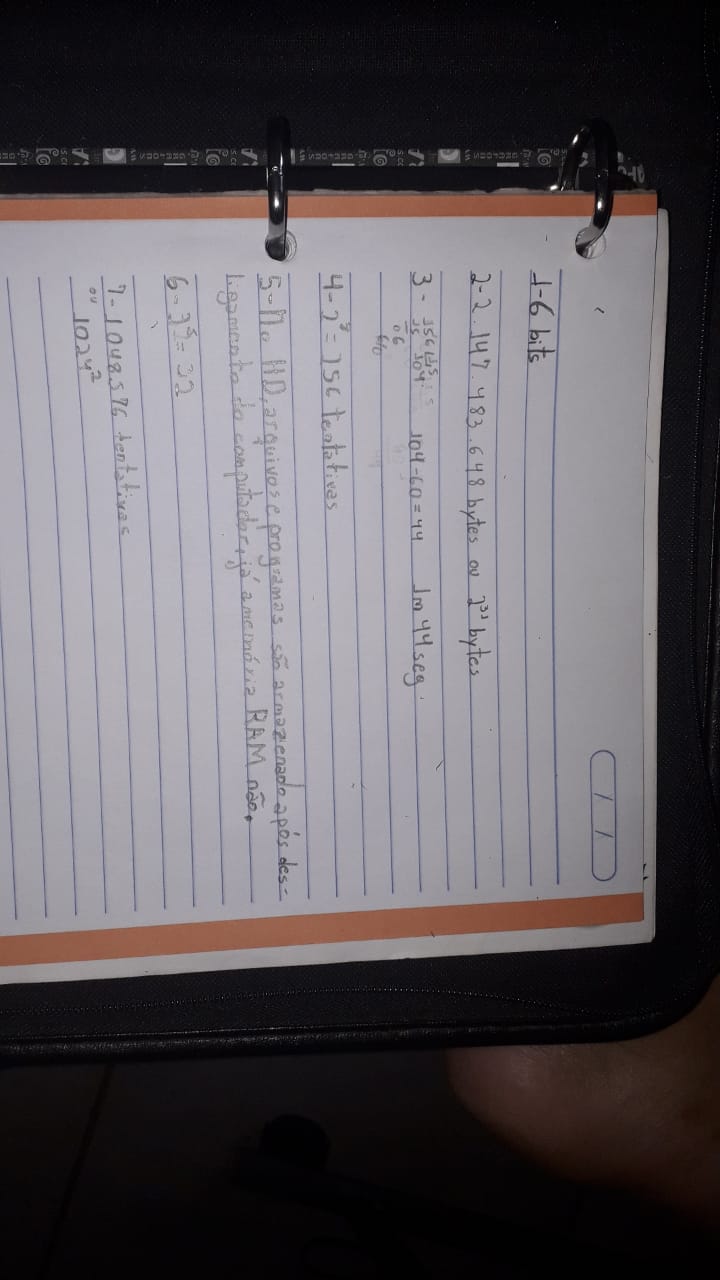 1-6 bits
2-2.147.483.648 bytes ou 2³¹ bytes
3- 156 1,5
15 104
104-60=44 1m 44 seg.
06
60
4-2⁸=256 tentativas
5-No HD, arquivos e programas são armazenado após des-
ligamento do computador, já a memória RAM não.
6-2⁵=32
7-1048576 tentativas
ou 1024²